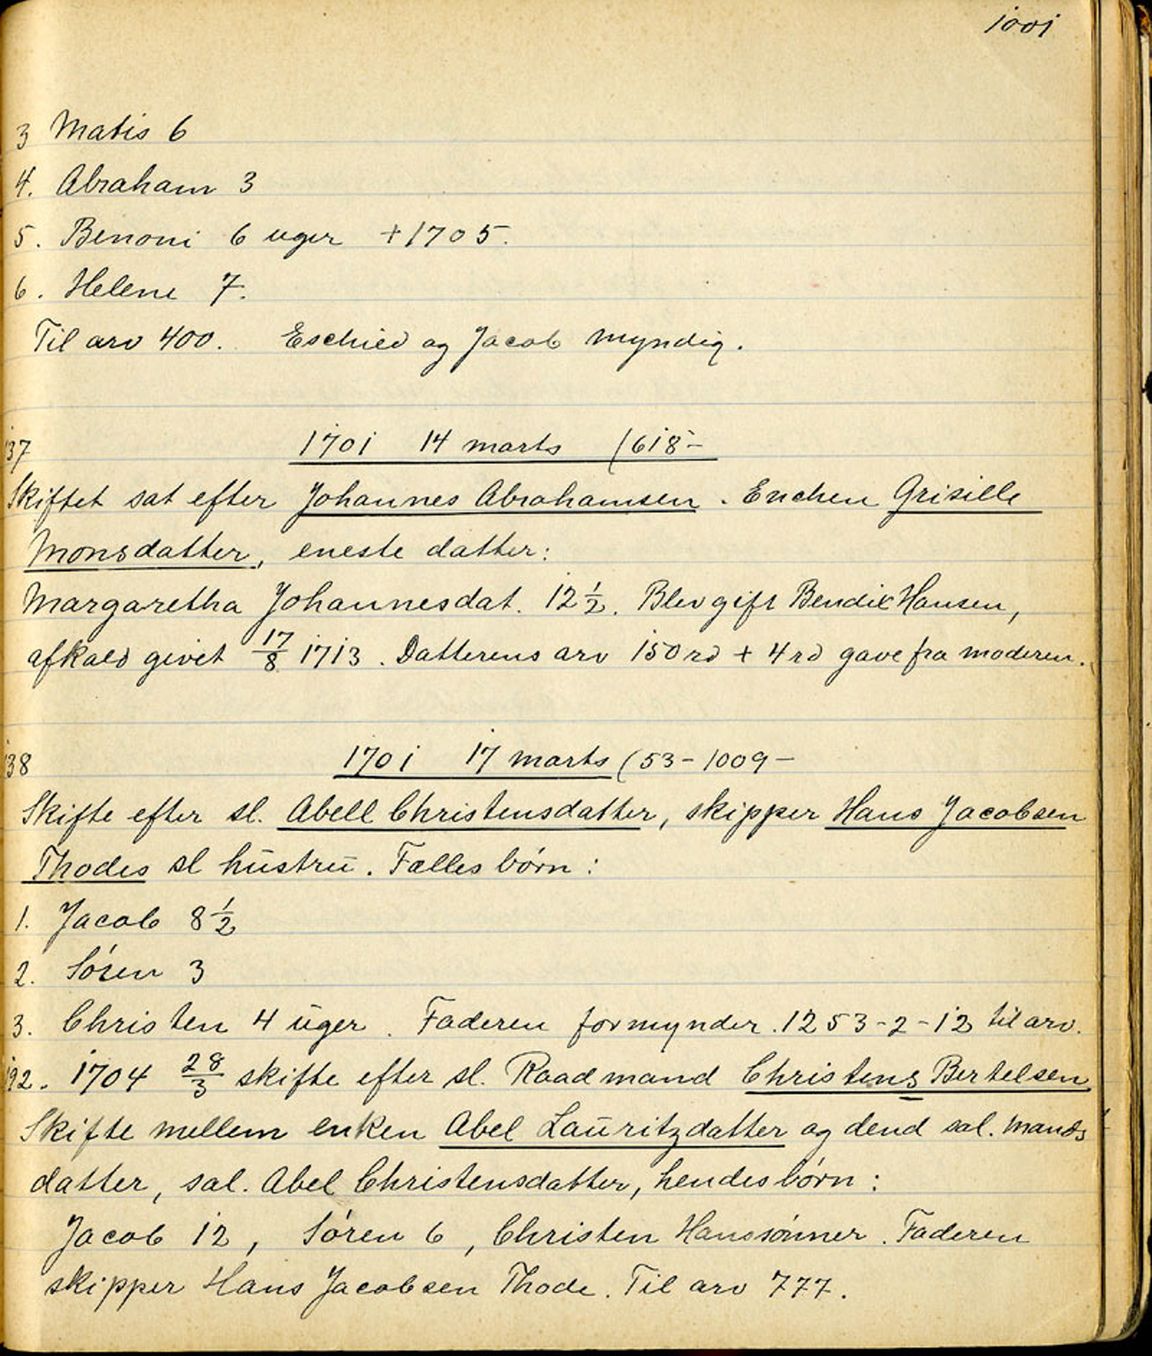 1001
3 Matis 6
4. Abraham 3
5. Benoni 6 uger +1705.
6. Helene 7.
Til arv 400. Eschild og Jacob myndig.
137
1701 14 marts (618-
Skiftet sat efter Johannes Abrahamsen. Enchen Grisille
Monsdatter, eneste datter:
Margaretha Johannesdat. 12 1/2. Blev gift Bendix Hansen,
afkald givet 17/8 1713. Datterens arv 150 rd + 4 rd gave fra moderen.
138
1701 17 marts (53-1009-
Skifte efter sl. Abell Christensdatter, skipper Hans Jacobsen
Thodes sl hūstrū. Fælles børn:
1. Jacob 8 1/2
2. Søren 3
3. Christen 4 ūger. Faderen formynder. 1253-2-12 til arv.
192. 1704 28/3 skifte efter sl. Raadmand Christens Bertelsen,
Skifte mellem enken Abel Laūritzdatter og dend sal. mands
datter, sal. Abel Christensdatter, hendes børn:
Jacob 12, Søren 6, Christen Hanssønner. Faderen
skipper Hans Jacobsen Thode. Til arv 777.